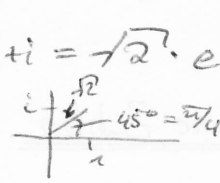 +i = √2 · e
√2
i
45° = π/4
1